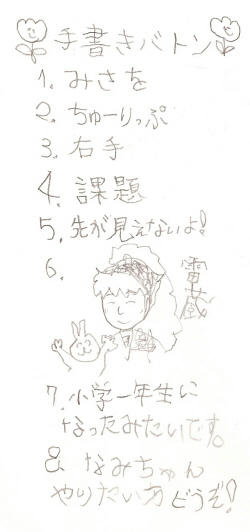 手書きバトン
1. みさを
2. ちゅーりっぷ
3. 右手
4. 課題
5. 先が見えないよ!
6.
雷蔵
7. 小学一年生に
なったみたいです。
8. なみちゃん
やりたい方どうぞ!